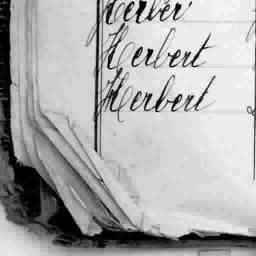 Herber
Herbert
Herbert